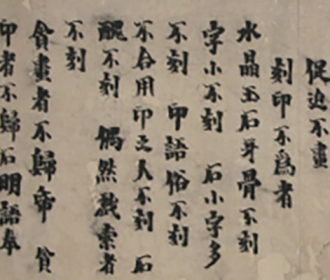 促迫不畫
刻印不爲者
水晶玉石牙骨不刻
字小不刻 石小字多
不刻 印語俗不刻
不合用印之人不刻 石
醜不刻 偶然戲索者
不刻
貪畫者不歸帋 貧
印者不歸石明語奉